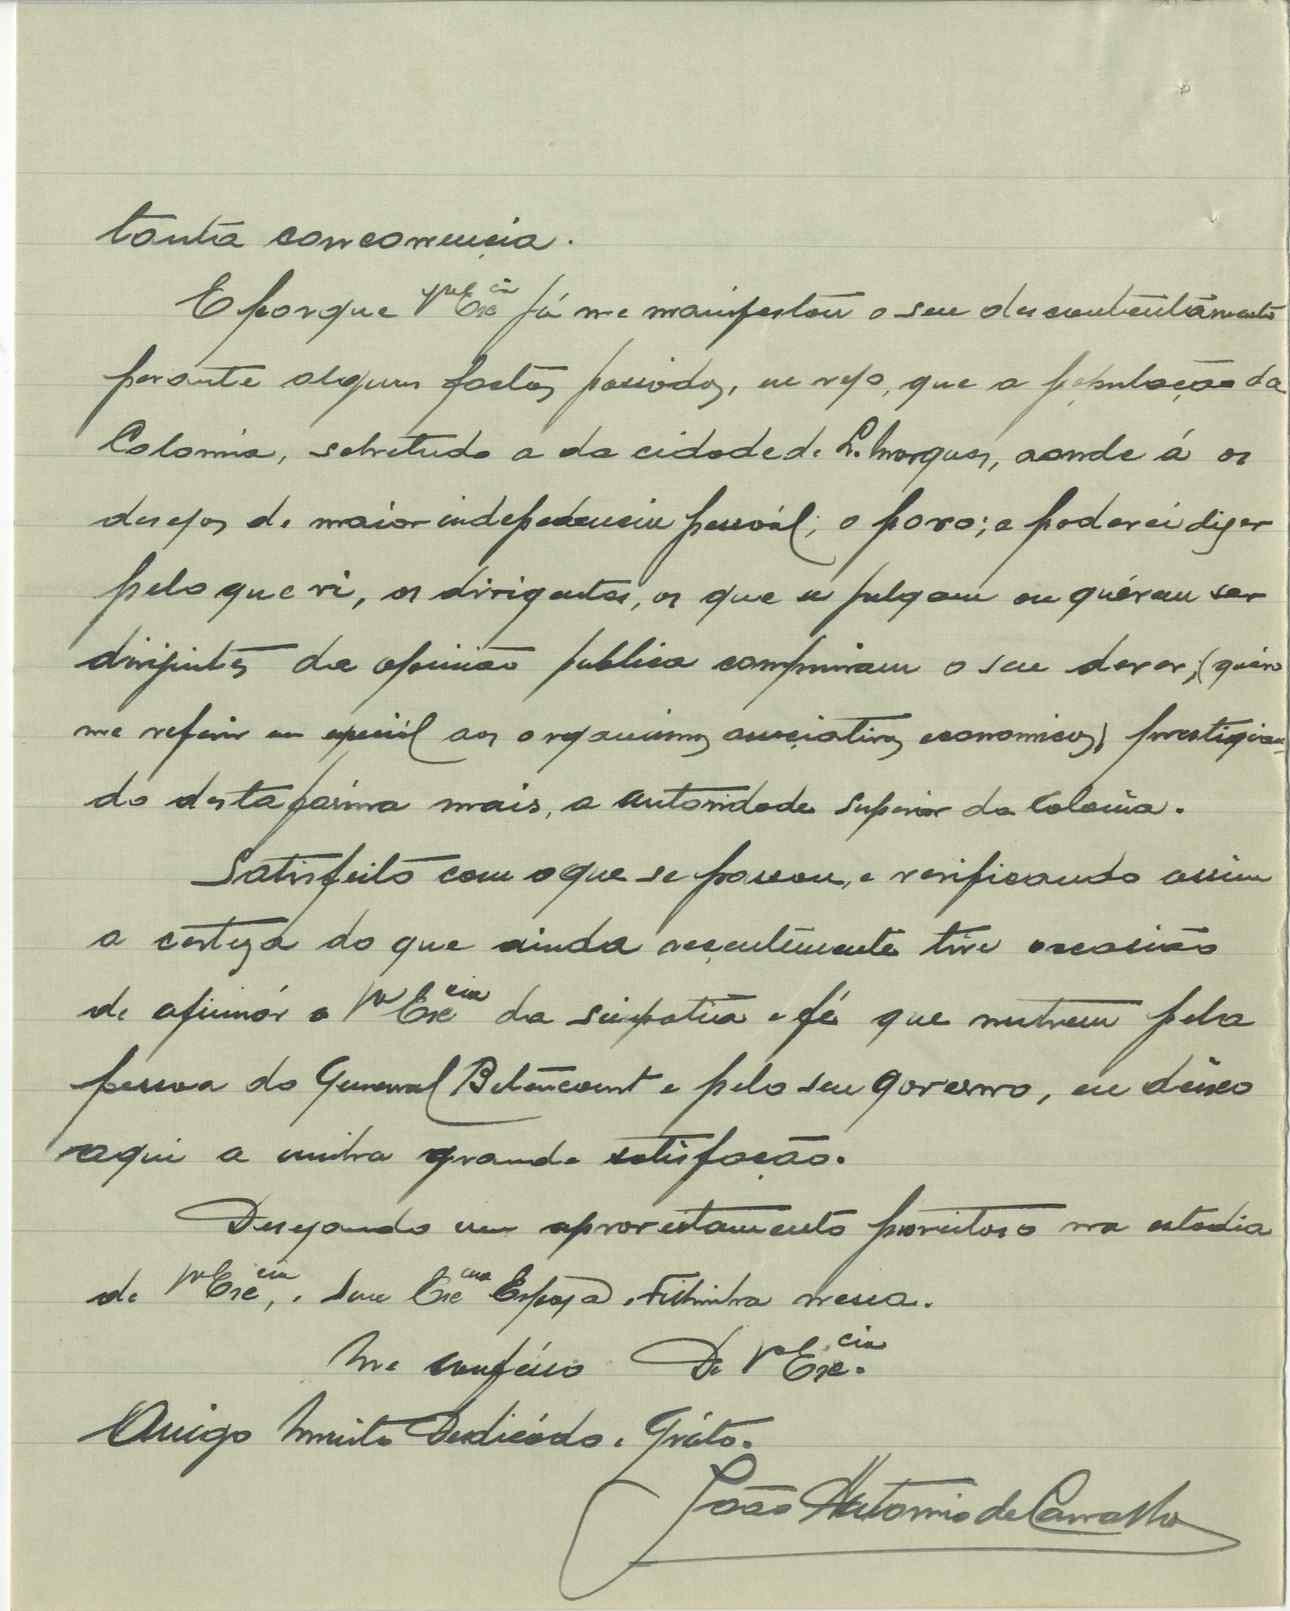 tanta concorrencia.
E porque V Exᶜⁱᵃ já me manifestou o seu descontentamento
perante alguns factos passados, eu vejo, que a população da
Colonia, sobretudo a da cidade de L. Marques, aonde á os
desejos de maior indepedencia pessoál; o povo; e poderei dizer
pelo que vi, os dirigentes, os que se julgam ou quéram ser
dirijentes da opinião publica compriram o seu dever, (quéro
me referir em especiál aos organismos associativos economicos) prestigian-
do desta forma mais, a autoridade superior da Colonia.
Satisfeito com o que se passou, e verificando assim
a certeza do que ainda recentemente tive ocasião
de afirmár a V Exᶜⁱᵃ da simpatia e fé que nutrem pela
pessoa do General Betencourt e pelo seu governo, eu deixo
aqui a minha grande satisfação.
Desejando um aproveitamento proveitoso na estadia
de V Exᶜⁱᵃ, e sua Exᵐᵃ Espoza e Filhinha
Me confésso De V Exᶜⁱᵃ.
Amigo Muito Dedicádo e Gráto.
João Antonio de Carvalho